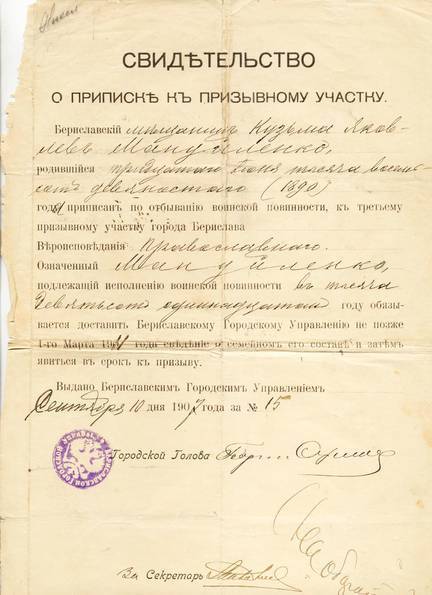 СВИДѢТЕЛЬСТВО
О ПРИПИСКѢ КЪ ПРИЗЫВНОМУ УЧАСТКУ.
Бериславскій мѣщанинъ Кузьма Яков-
левъ Мануйленко,
родившійся тридцатаго Іюня тысяча восемь-
сотъ девяностаго (1890)
года приписанъ по отбыванію воинской повинности, къ третьему
призывному участку города Берислава
Вѣроисповѣданія православнаго.
Означенный Мануйленко,
подлежащій исполненію воинской повинности въ тысяча
девятьсотъ одиннадцатомъ году обязы-
вается доставить Бериславскому Городскому Управленію не позже
1-го Марта 1911 года свѣдѣніе о семейномъ его составѣ и затѣмъ
явиться въ срокъ къ призыву.
Выдано Бериславскимъ Городскимъ Управленіемъ
Сентября 10 дня 1907 года за № 15
Городской Голова
За Секретарь